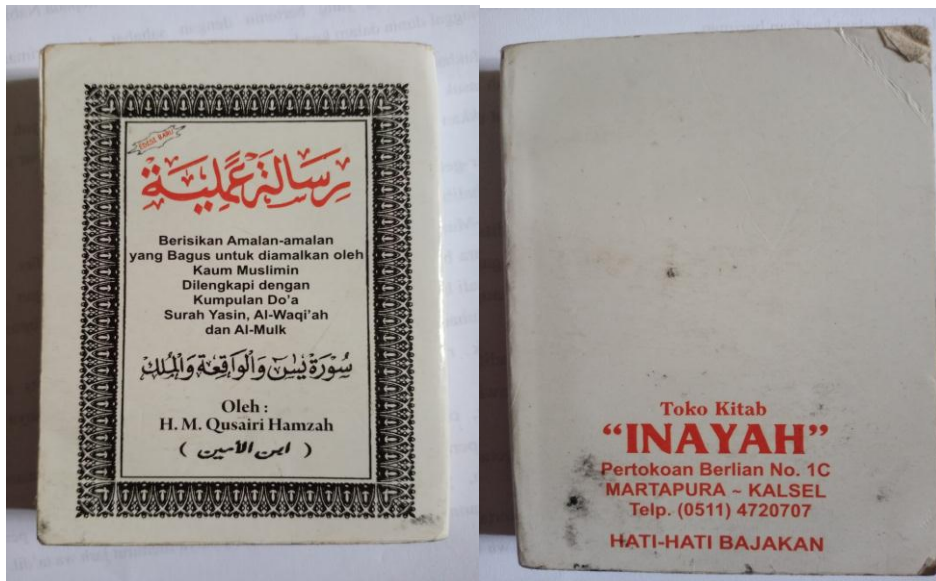 EDISI BARU
رسالة عملية
Berisikan Amalan-amalan
yang Bagus untuk diamalkan oleh
Kaum Muslimin
Dilengkapi dengan
Kumpulan Do'a
Surah Yasin, Al-Waqi'ah
dan Al-Mulk
سُورَةُ يٰسٓ وَالْوَاقِعَة وَالْمُلْك
Oleh :
H. M. Qusairi Hamzah
( ابن الأمين )
Toko Kitab
“INAYAH”
Pertokoan Berlian No. 1C
MARTAPURA ~ KALSEL
Telp. (0511) 4720707
HATI-HATI BAJAKAN